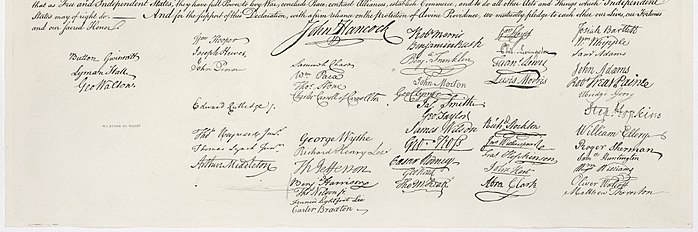 that as Free and Independent States, they have full Power to levy War, conclude Peace, contract Alliances, establish Commerce, and to do all other Acts and Things which Independent
States may of right do. — And for the support of this Declaration, with a firm reliance on the protection of divine Providence, we mutually pledge to each other our Lives, our Fortunes
and our sacred Honor.
John Hancock
Button Gwinnett
Lyman Hall
Geo Walton.
Wm Hooper
Joseph Hewes,
John Penn
Edward Rutledge /.
Thos Heyward Junr.
Thomas Lynch Junr.
Arthur Middleton
Samuel Chase
Wm Paca
Thos Stone
Charles Carroll of Carrollton
George Wythe
Richard Henry Lee
Th Jefferson
Benj Harrison
Thos Nelson jr.
Francis Lightfoot Lee
Carter Braxton
Robt Morris
Benjamin Rush
Benj. Franklin
John Morton
Geo Clymer
Jas. Smith
Geo. Taylor
James Wilson
Geo. Ross
Caesar Rodney
Geo Read
Tho M:Kean
Wm Floyd
Phil. Livingston
Frans. Lewis
Lewis Morris
Richd. Stockton
Jno Witherspoon
Fras. Hopkinson
John Hart
Abra Clark
Josiah Bartlett
Wm Whipple
Saml Adams
John Adams
Robt Treat Paine
Elbridge Gerry
Step. Hopkins
William Ellery
Roger Sherman
Saml Huntington
Wm Williams
Oliver Wolcott
Matthew Thornton